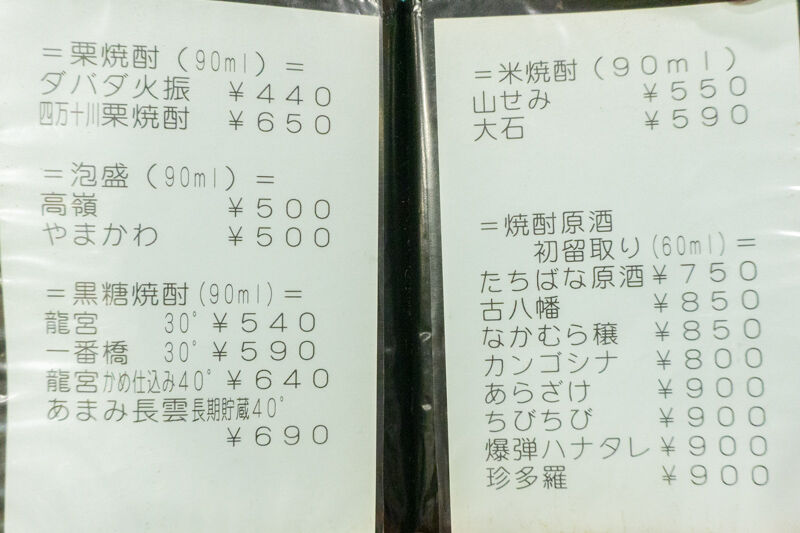 ＝栗焼酎（90ml）＝
ダバダ火振　￥４４０
四万十川栗焼酎　￥６５０
＝泡盛（90ml）＝
高嶺　￥５００
やまかわ　￥５００
＝黒糖焼酎(90ml)＝
龍宮　30°￥５４０
一番橋　30°￥５９０
龍宮かめ仕込み40°￥６４０
あまみ長雲長期貯蔵40°
￥６９０
＝米焼酎（９０ｍｌ）
山せみ　￥５５０
大石　￥５９０
＝焼酎原酒
初留取り(60ml)＝
たちばな原酒￥７５０
古八幡　￥８５０
なかむら穣　￥８５０
カンゴシナ　￥８００
あらざけ　￥９００
ちびちび　￥９００
爆弾ハナタレ￥９００
珍多羅　￥９００